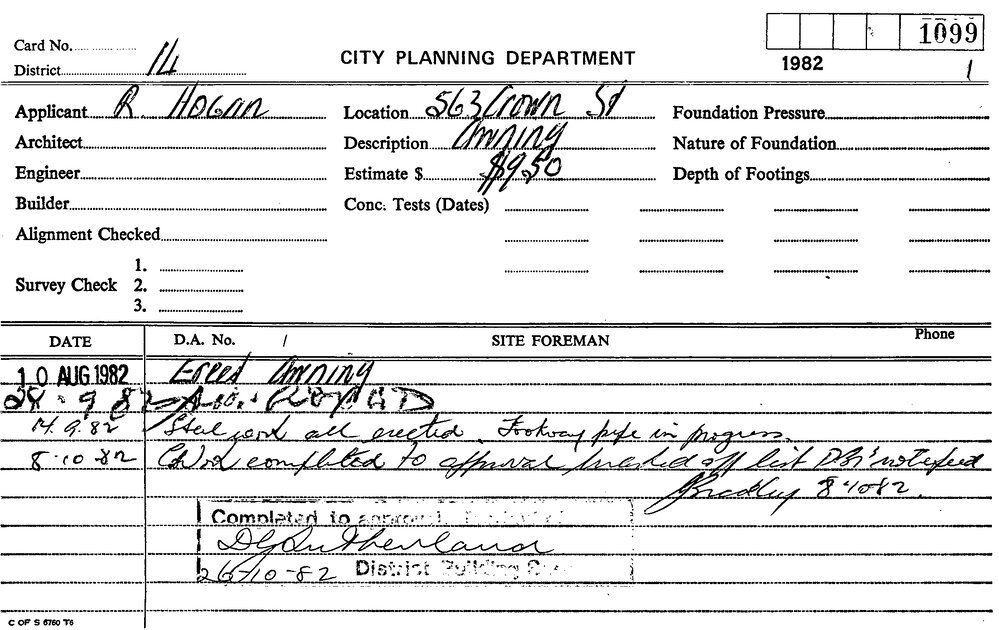 Card No.
1099
District 14
CITY PLANNING DEPARTMENT
1982
1
Applicant R. HOGAN
Location 563 Crown St
Foundation Pressure
Architect
Description Awning
Nature of Foundation
Engineer
Estimate $ $9.50
Depth of Footings
Builder
Conc. Tests (Dates)
Alignment Checked
Survey Check 1.
2.
3.
DATE D.A. No. / SITE FOREMAN Phone
10 AUG 1982 Erect Awning
9 82
14.9.82 Steel work all erected. Footway in progress.
8·10·82 completed to approval marked off list notified
Bradley 8/10/82.
Completed to approval.
DG Sutherland
26-10-82 District Building
C OF S 6760 T6